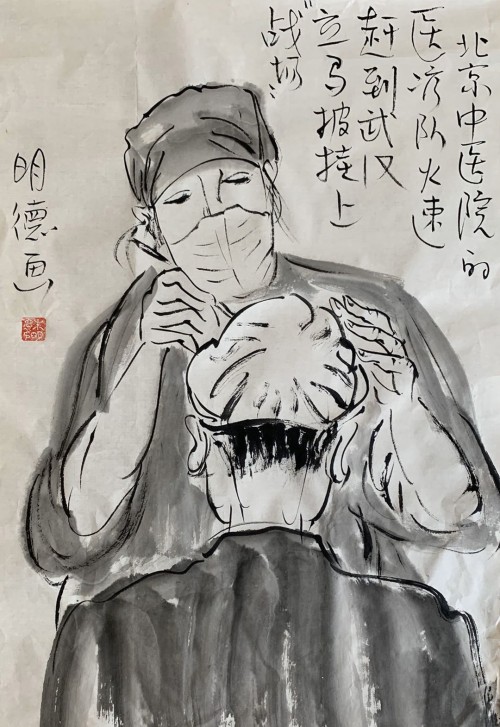 北京中医院的
医疗队火速
赶到武汉
立马披挂上
“战场”
明德画